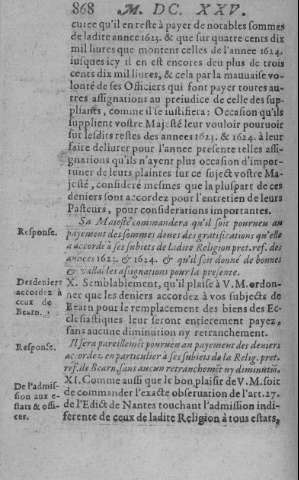 868 M. DC. XXV.
curee qu'il en reste à payer de notables sommes
de ladite annee 1623. & que sur quatre cents dix
mil liures que montent celles de l'annee 1624.
iusques icy il en est encores deu plus de trois
cents dix mil liures, & cela par la mauuaise vo-
lonté de ses Officiers qui font payer toutes au-
tres assignations au preiudice de celle des sup-
plians, comme il se iustifiera: Occasion qu'ils
supplient vostre Majesté leur vouloir pouruoir
sur lesdits restes des annees 1623. & 1624. à leur
faire deliurer pour l'annee presente telles assi-
gnations qu'ils n'ayent plus occasion d'impor-
tuner de leurs plaintes sur ce suject vostre Ma-
jesté, consideré mesmes que la pluspart de ces
deniers sont accordez pour l'entretien de leurs
Pasteurs, pour considerations importantes.
Response.
Sa Maiesté commandera qu'il soit pourueu au
payement des sommes deues des gratifications qu'elle
a accordé à ses subiets de ladite Religion pret. ref. des
annees 1623. & 1624. & qu'il soit donné de bonnes
& vallables assignations pour la presente.
Des deniers
accordez à
ceux de
Bearn.
X. Semblablement, qu'il plaise à V. M. ordon-
ner que les deniers accordez à vos subjects de
Bearn pour le remplacement des biens des Ec-
clesiastiques leur seront entierement payez,
sans aucune diminution ny retranchement.
Response.
Il sera pareillemēt pourueu au payement des deniers
accordez en particulier à ses subiets de la Relig. pret.
ref. de Bearn, sans aucun retranchemēt ny diminutiō.
De l'admis-
sion aux e-
stats & offi-
ces.
XI. Comme aussi que le bon plaisir de V. M. soit
de commander l'exacte obseruation de l'art. 27.
de l'Edict de Nantes touchant l'admission indif-
ferente de ceux de ladite Religion à tous estats,